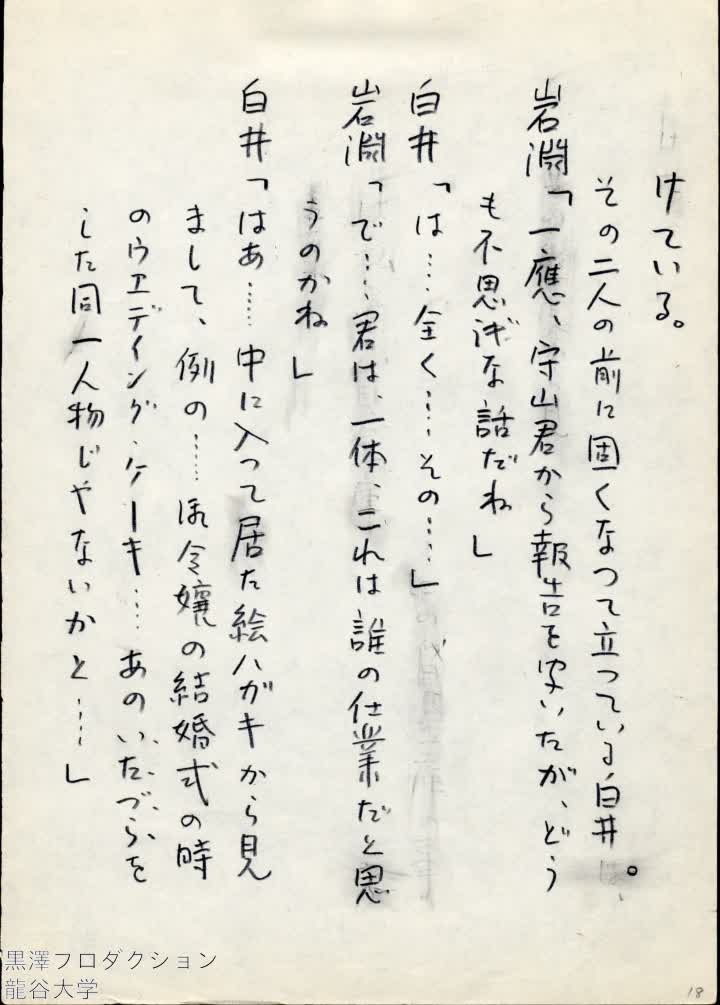 けている。
その二人の前に固くなつて立つている白井。
岩淵「一應、守山君から報告を聞いたが、どう
も不思議な話だね」
白井「は……全く……その……」
岩淵「で……君は、一体、これは誰の仕業だと思
うのかね」
白井「はあ……中に入つて居た絵ハガキから見
まして、例の……御令嬢の結婚式の時
のウエディング・ケーキ……あのいたづらを
した同一人物じやないかと……」
18
黒澤プロダクション
龍谷大学